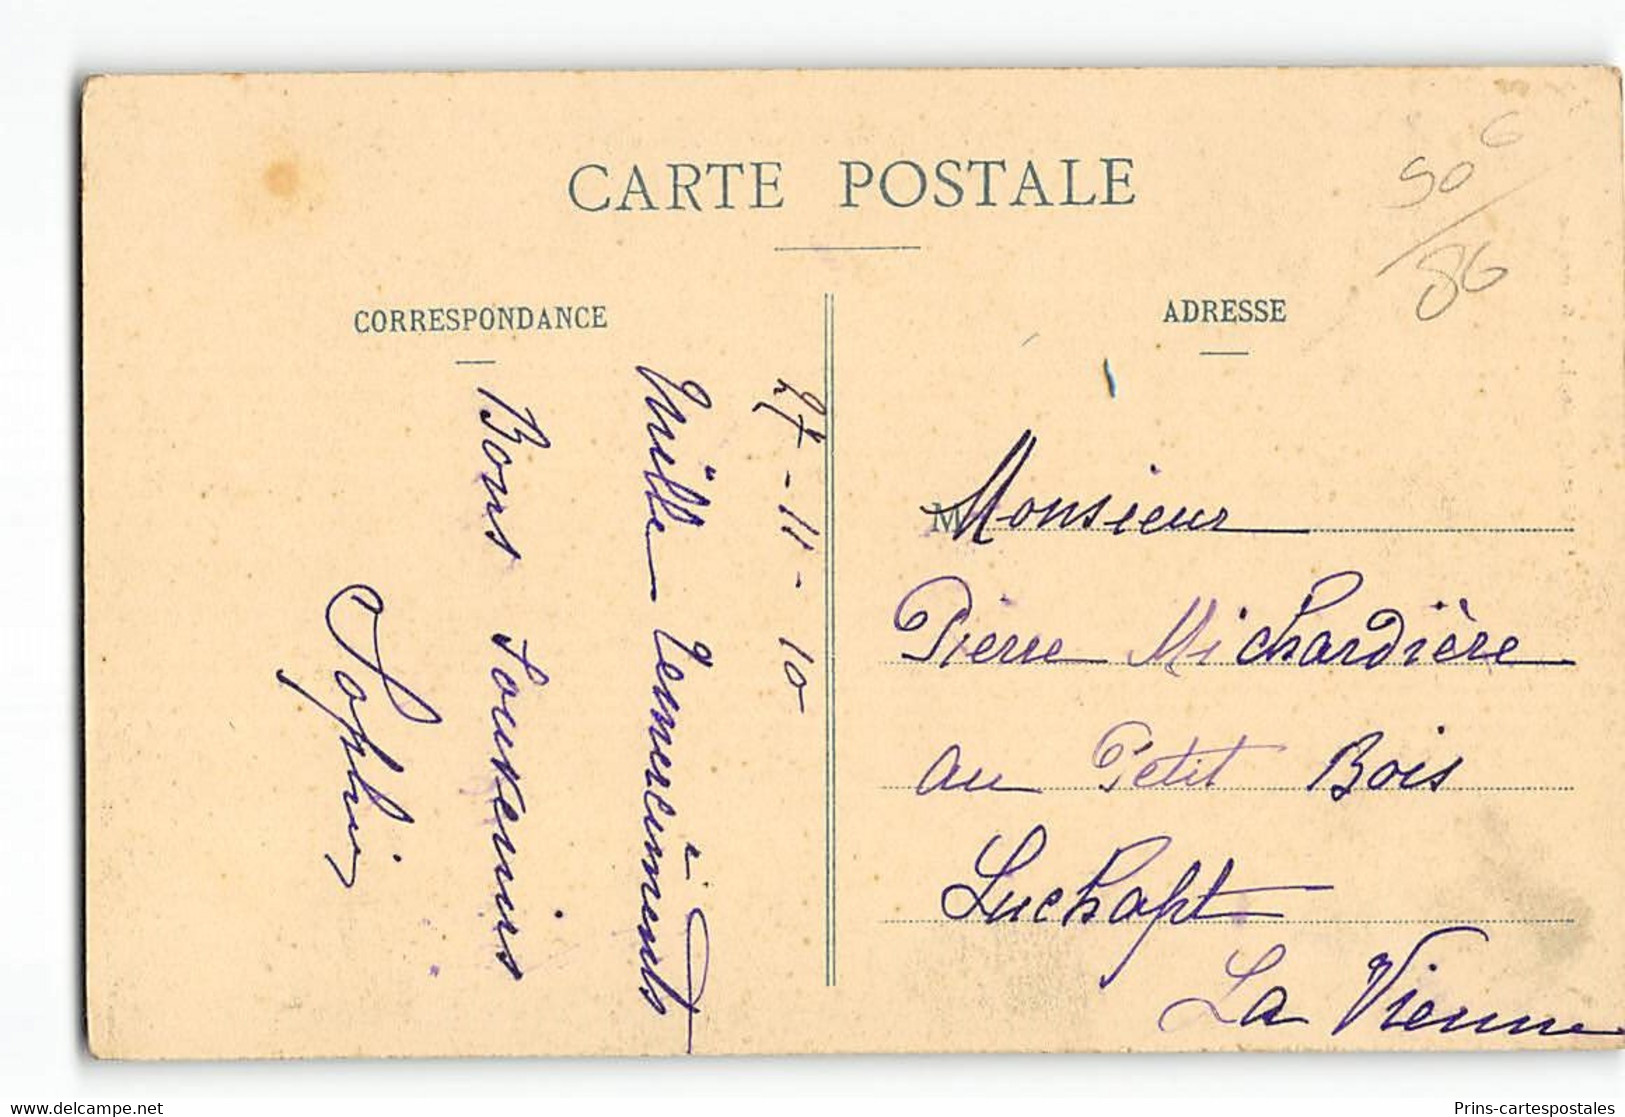 CARTE POSTALE
50 6
86
CORRESPONDANCE
27-11-10
Mille remerciments
Bons Souvenirs
Sophie
ADRESSE
M Monsieur
Pierre Michardière
au Petit Bois
Luchapt
La Vienne
www.delcampe.net
Prins-cartespostales